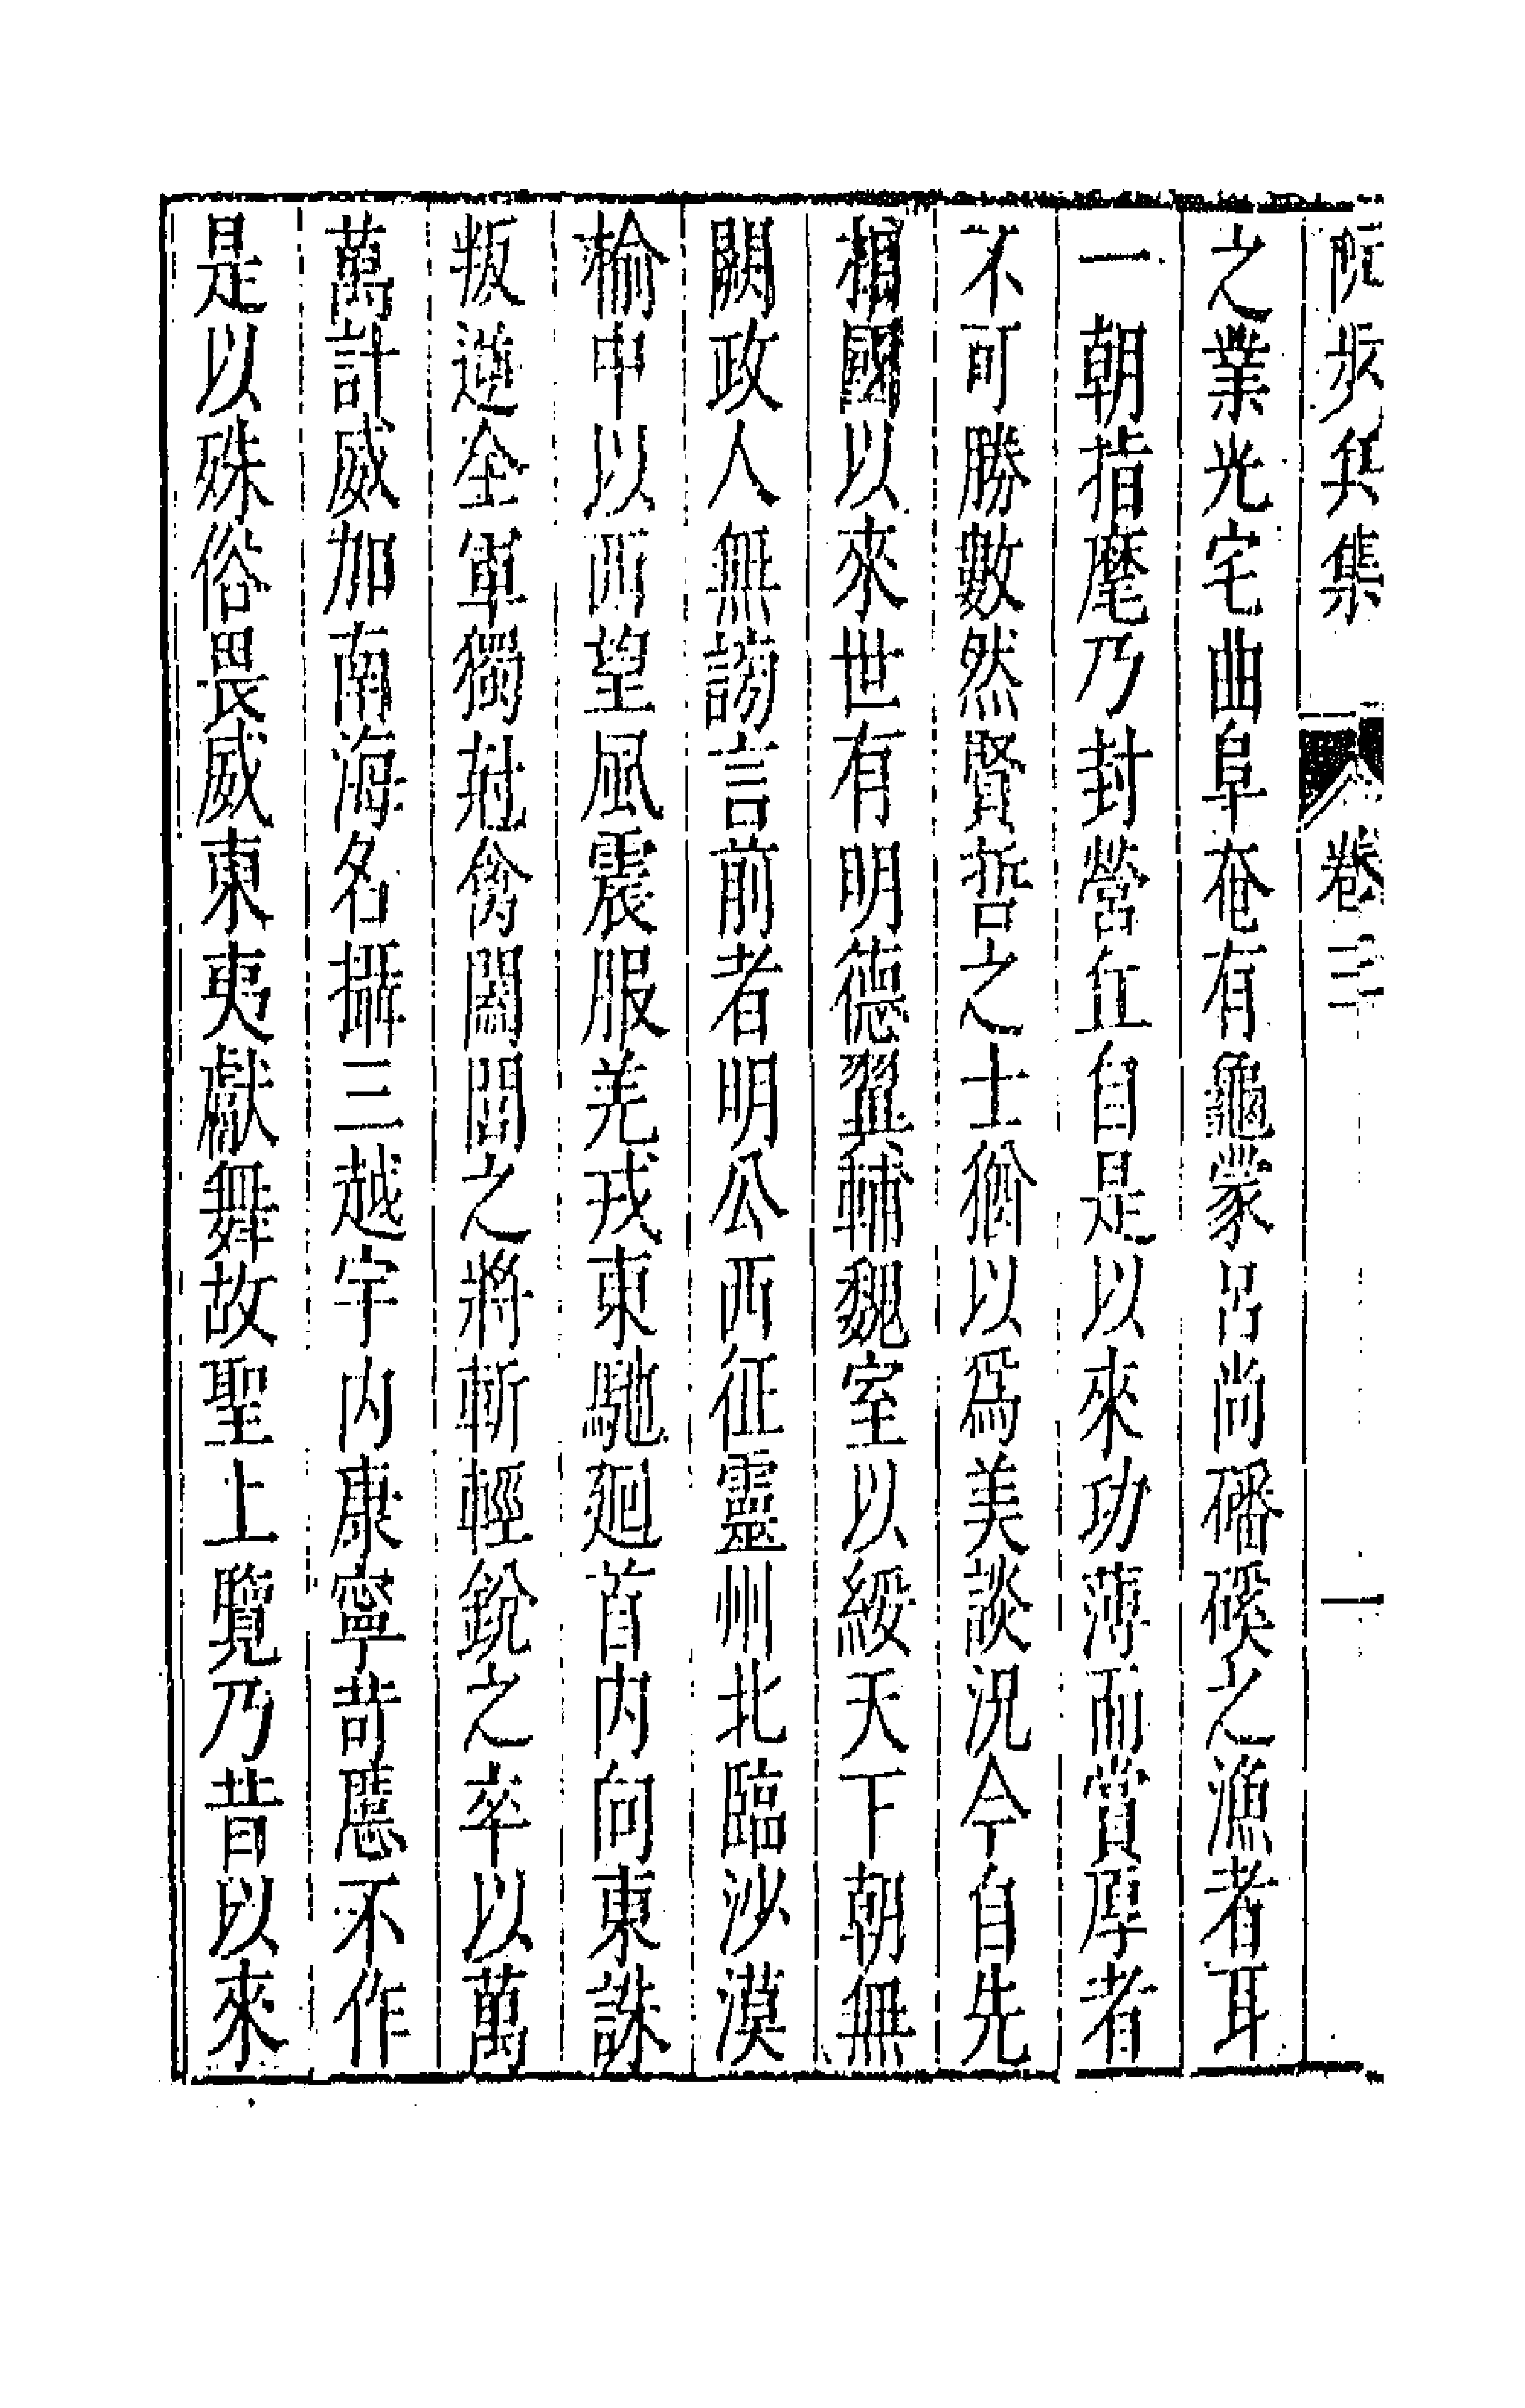 阮步兵集 卷 一
之業光宅曲阜奄有龜蒙呂尚磻磎之漁者耳
一朝指麾乃封營丘自是以來功薄而賞厚者
不可勝數然賢哲之士猶以爲美談況今自先
相國以來世有明德翼輔魏室以綏天下朝無
闕政人無謗言前者明公西征靈州北臨沙漠
榆中以西望風震服羌戎東馳廻首內向東誅
叛逆全軍獨尅禽闔閭之將斬輕銳之卒以萬
萬計威加南海名攝三越宇內康寧苛慝不作
是以殊俗畏威東夷獻舞故聖上覽乃昔以來